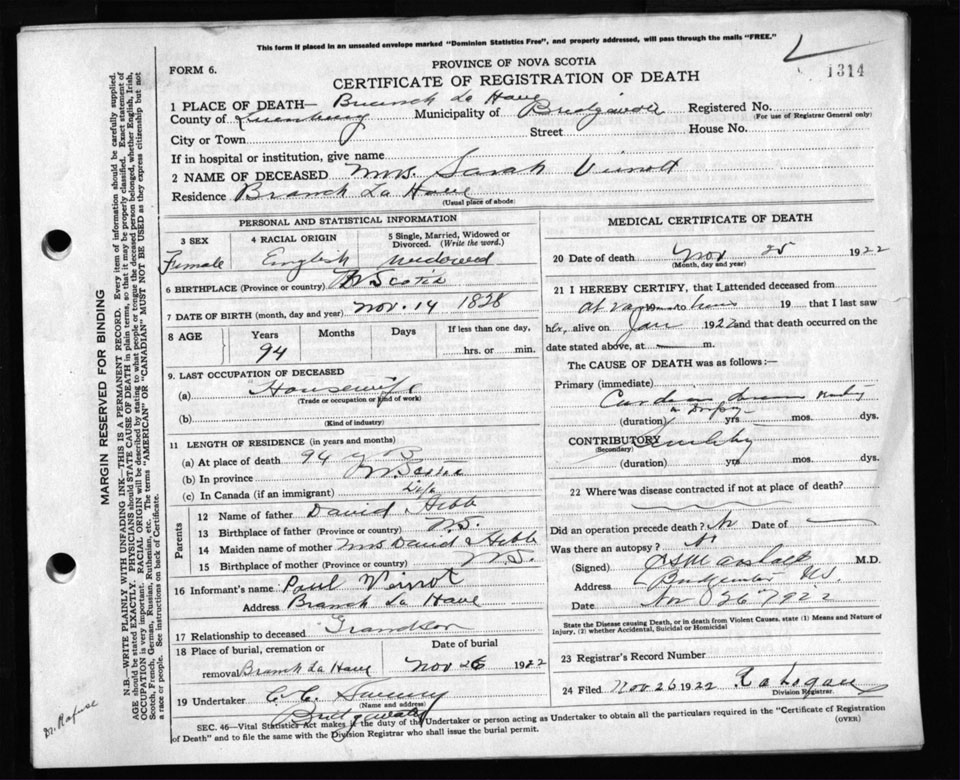 This form if placed in an unsealed envelope marked "Dominion Statistics Free", and properly addressed, will pass through the mails "FREE."
1314
PROVINCE OF NOVA SCOTIA
FORM 6.
CERTIFICATE OF REGISTRATION OF DEATH
1 PLACE OF DEATH— Branch La Have
County of Lunenburg Municipality of Registered No.
(For use of Registrar General only)
City or Town Street House No.
If in hospital or institution, give name
2 NAME OF DECEASED Mrs. Sarah
Residence Branch La Have
(Usual place of abode)
PERSONAL AND STATISTICAL INFORMATION
3 SEX Female
4 RACIAL ORIGIN English
5 Single, Married, Widowed or Divorced. (Write the word.) widowed
6 BIRTHPLACE (Province or country) N Scotia
7 DATE OF BIRTH (month, day and year) Nov. 14 1828
8 AGE Years Months Days If less than one day,
94 hrs. or min.
9. LAST OCCUPATION OF DECEASED
(a) Housewife
(Trade or occupation or kind of work)
(b)
(Kind of industry)
11 LENGTH OF RESIDENCE (in years and months)
(a) At place of death 94 yrs
(b) In province N Scotia
(c) In Canada (if an immigrant) Life
Parents
12 Name of father David Hebb
13 Birthplace of father (Province or country) N.S.
14 Maiden name of mother Mrs David Hebb
15 Birthplace of mother (Province or country) N.S.
16 Informant's name Paul Veinot
Address Branch La Have
17 Relationship to deceased Grandson
18 Place of burial, cremation or removal Branch La Have
Date of burial Nov 26 1922
19 Undertaker C.C.
(Name and address)
Bridgewater
MEDICAL CERTIFICATE OF DEATH
20 Date of death Nov 25 1922
(Month, day and year)
21 I HEREBY CERTIFY, that I attended deceased from
at 19 that I last saw
her alive on Jan 1922 and that death occurred on the
date stated above, at — m.
The CAUSE OF DEATH was as follows:—
Primary (immediate)
(duration) yrs mos. dys.
CONTRIBUTORY Senility
(Secondary)
(duration) yrs mos. dys.
22 Where was disease contracted if not at place of death?
Did an operation precede death? No Date of
Was there an autopsy? No
(Signed) M.D.
Address Bridgewater N.S.
Date Nov 26 1922
State the Disease causing Death, or in death from Violent Causes, state (1) Means and Nature of Injury, (2) whether Accidental, Suicidal or Homicidal
23 Registrar's Record Number
24 Filed Nov 26 1922
Division Registrar.
SEC. 46—Vital Statistics Act makes it the duty of the Undertaker or person acting as Undertaker to obtain all the particulars required in the "Certificate of Registration
of Death" and to file the same with the Division Registrar who shall issue the burial permit.
(OVER)
MARGIN RESERVED FOR BINDING
N.B.—WRITE PLAINLY WITH UNFADING INK—THIS IS A PERMANENT RECORD. Every item of information should be carefully supplied.
AGE should be stated EXACTLY. PHYSICIANS should STATE CAUSE OF DEATH in plain terms, so that it may be properly classified. Exact statement of
OCCUPATION is very important. RACIAL ORIGIN will be described by stating to what people or tongue the deceased person belonged, whether English, Irish,
Scotch, French, German, Russian, Ruthenian, etc. The terms "AMERICAN" or "CANADIAN" MUST NOT BE USED as they express citizenship but not
a race or people. See instructions on back of Certificate.